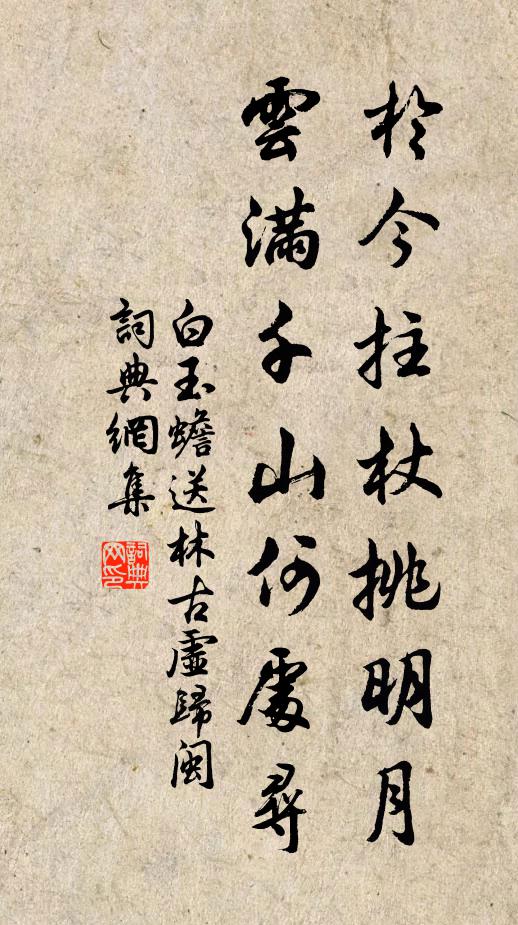 於今拄杖挑明月
雲滿千山何處尋
白玉蟾送林古虛歸閩
詞典網集
詞典
网印